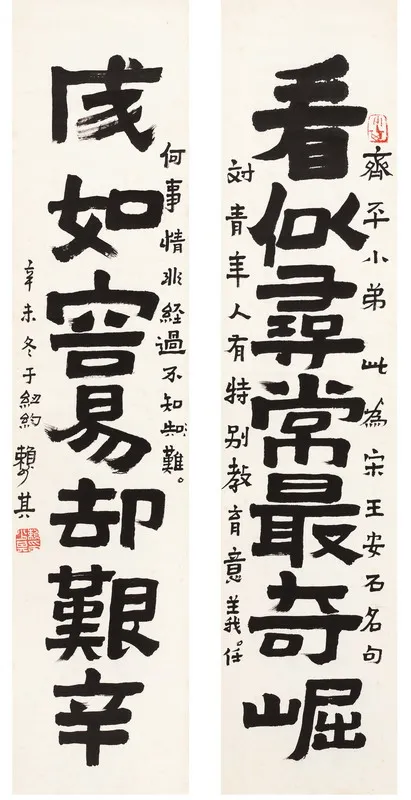 齊平小弟此為宋王安石名句
看似尋常最奇崛
対青年人有特別教育意義。任
何事情非経過不知難。
成如容易却艱辛
辛未冬于紐約 賴少其